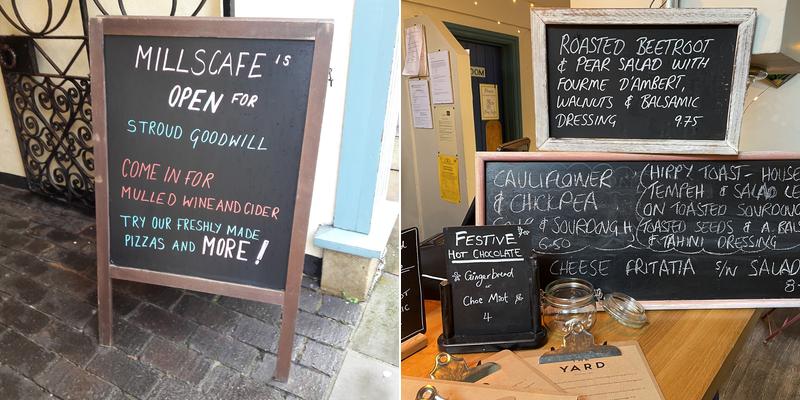 MILLSCAFE IS
OPEN FOR
STROUD GOODWILL
COME IN FOR
MULLED WINE AND CIDER
TRY OUR FRESHLY MADE
PIZZAS AND MORE!
ROASTED BEETROOT
& PEAR SALAD WITH
FOURME D'AMBERT,
WALNUTS & BALSAMIC
DRESSING 9.75
CAULIFLOWER
& CHICKPEA
& SOURDOUGH
6.50
(HIPPY TOAST- HOUSE
TEMPEH & SALAD LE
ON TOASTED SOURDOUG
TOASTED SEEDS & A.BALS
& TAHINI DRESSING
CHEESE FRITATIA S/N SALAD
8
FESTIVE
HOT CHOCOLATE
Gingerbread
or
Choc Mint
4
YARD
OOM